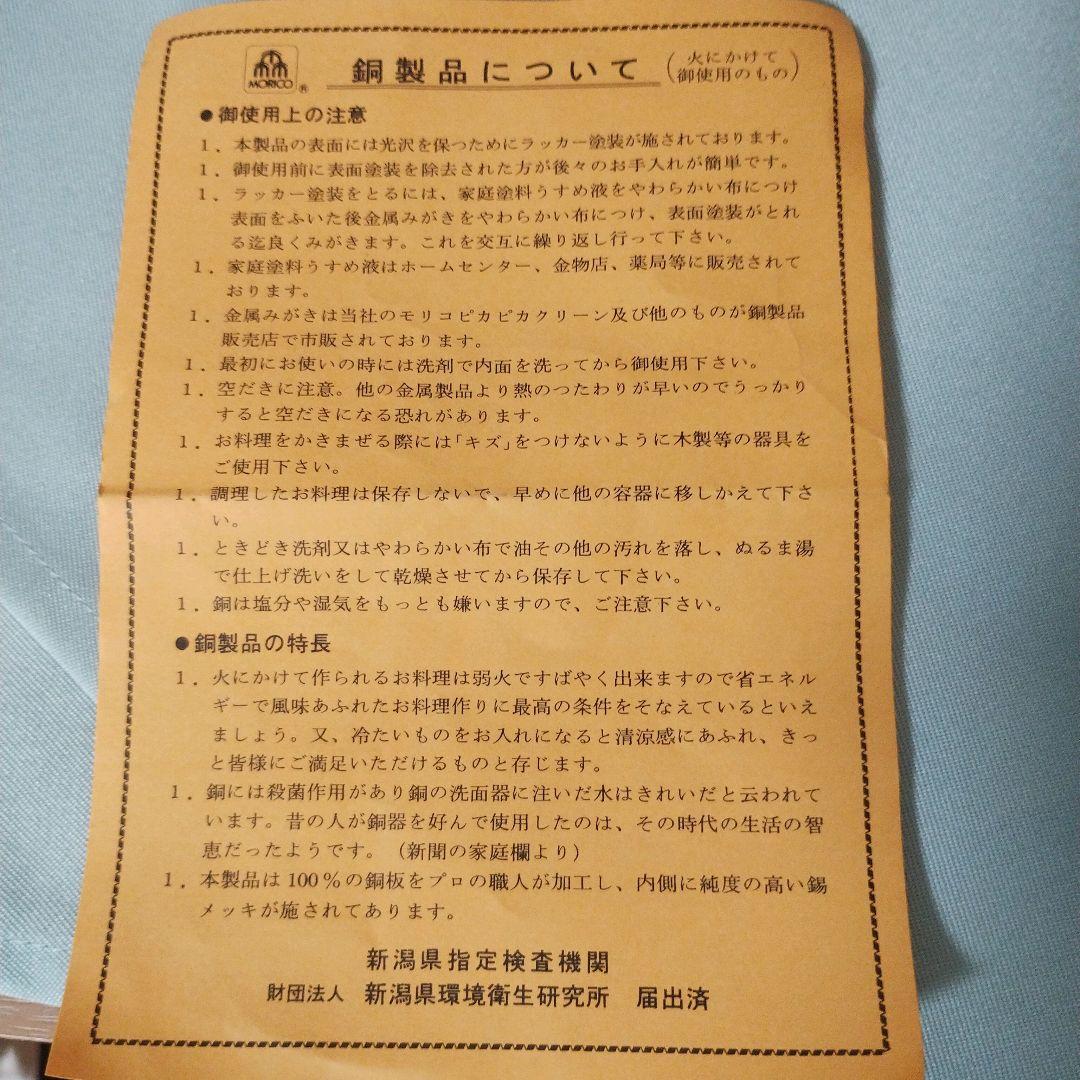 MORICO ®
銅製品について（火にかけて御使用のもの）
●御使用上の注意
1．本製品の表面には光沢を保つためにラッカー塗装が施されております。
1．御使用前に表面塗装を除去された方が後々のお手入れが簡単です。
1．ラッカー塗装をとるには、家庭塗料うすめ液をやわらかい布につけ
表面をふいた後金属みがきをやわらかい布につけ、表面塗装がとれ
る迄良くみがきます。これを交互に繰り返し行って下さい。
1．家庭塗料うすめ液はホームセンター、金物店、薬局等に販売されて
おります。
1．金属みがきは当社のモリコピカピカクリーン及び他のものが銅製品
販売店で市販されております。
1．最初にお使いの時には洗剤で内面を洗ってから御使用下さい。
1．空だきに注意。他の金属製品より熱のつたわりが早いのでうっかり
すると空だきになる恐れがあります。
1．お料理をかきまぜる際には「キズ」をつけないように木製等の器具を
ご使用下さい。
1．調理したお料理は保存しないで、早めに他の容器に移しかえて下さ
い。
1．ときどき洗剤又はやわらかい布で油その他の汚れを落し、ぬるま湯
で仕上げ洗いをして乾燥させてから保存して下さい。
1．銅は塩分や湿気をもっとも嫌いますので、ご注意下さい。
●銅製品の特長
1．火にかけて作られるお料理は弱火ですばやく出来ますので省エネル
ギーで風味あふれたお料理作りに最高の条件をそなえているといえ
ましょう。又、冷たいものをお入れになると清涼感にあふれ、きっ
と皆様にご満足いただけるものと存じます。
1．銅には殺菌作用があり銅の洗面器に注いだ水はきれいだと云われて
います。昔の人が銅器を好んで使用したのは、その時代の生活の智
恵だったようです。（新聞の家庭欄より）
1．本製品は100％の銅板をプロの職人が加工し、内側に純度の高い錫
メッキが施されてあります。
新潟県指定検査機関
財団法人 新潟県環境衛生研究所 届出済